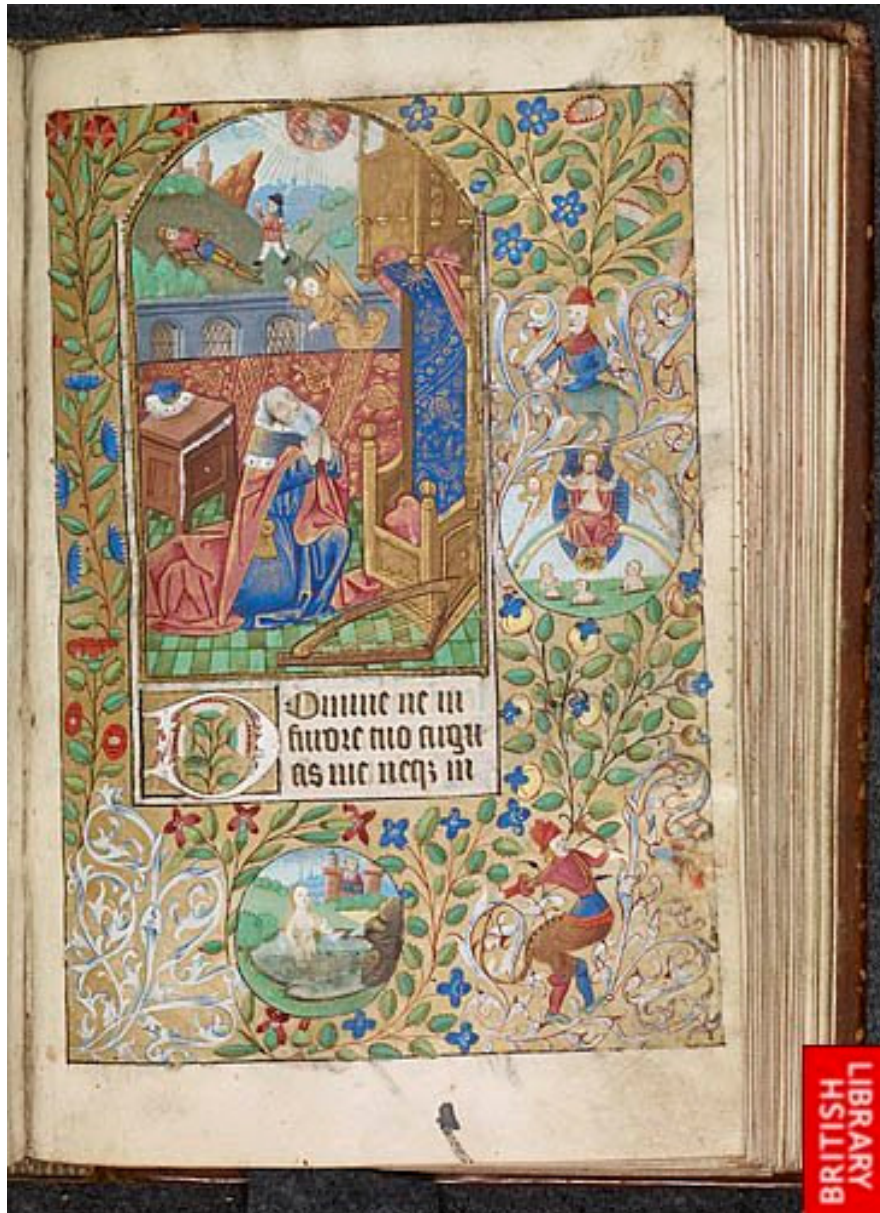 Domine ne in
furore tuo argu
as me neqz in
BRITISH
LIBRARY